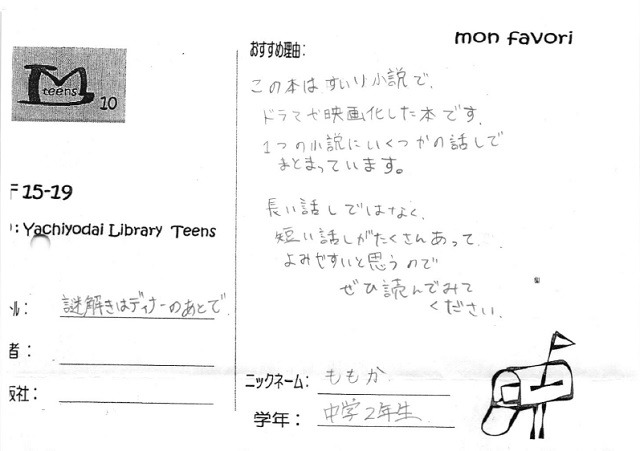 mon favori
M
teens
10
15-19
: Yachiyodai Library Teens
ル: 謎解きはディナーのあとで
者:
版社:
おすすめ理由:
この本はすいり小説で、
ドラマや映画化した本です。
1つの小説にいくつかの話しで
まとまっています。
長い話しではなく、
短い話しがたくさんあって、
よみやすいと思うので
ぜひ読んでみて
ください。
ニックネーム: ももか
学年: 中学2年生